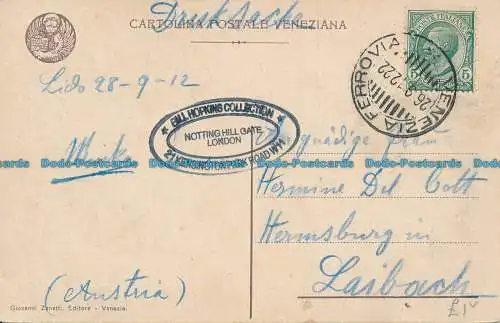 Drucksache
CARTOLINA POSTALE VENEZIANA
POSTE ITALIANE
5 5
VENEZIA FERROVIA
Lido 28-9-12
BILL HOPKINS COLLECTION
NOTTING HILL GATE
LONDON
21 KENSINGTON PARK ROAD W11
gnädige Frau
Hermine Del Cott
Hermsburg in
Laibach
(Austria)
Giovanni Zanetti, Editore - Venezia.
£1